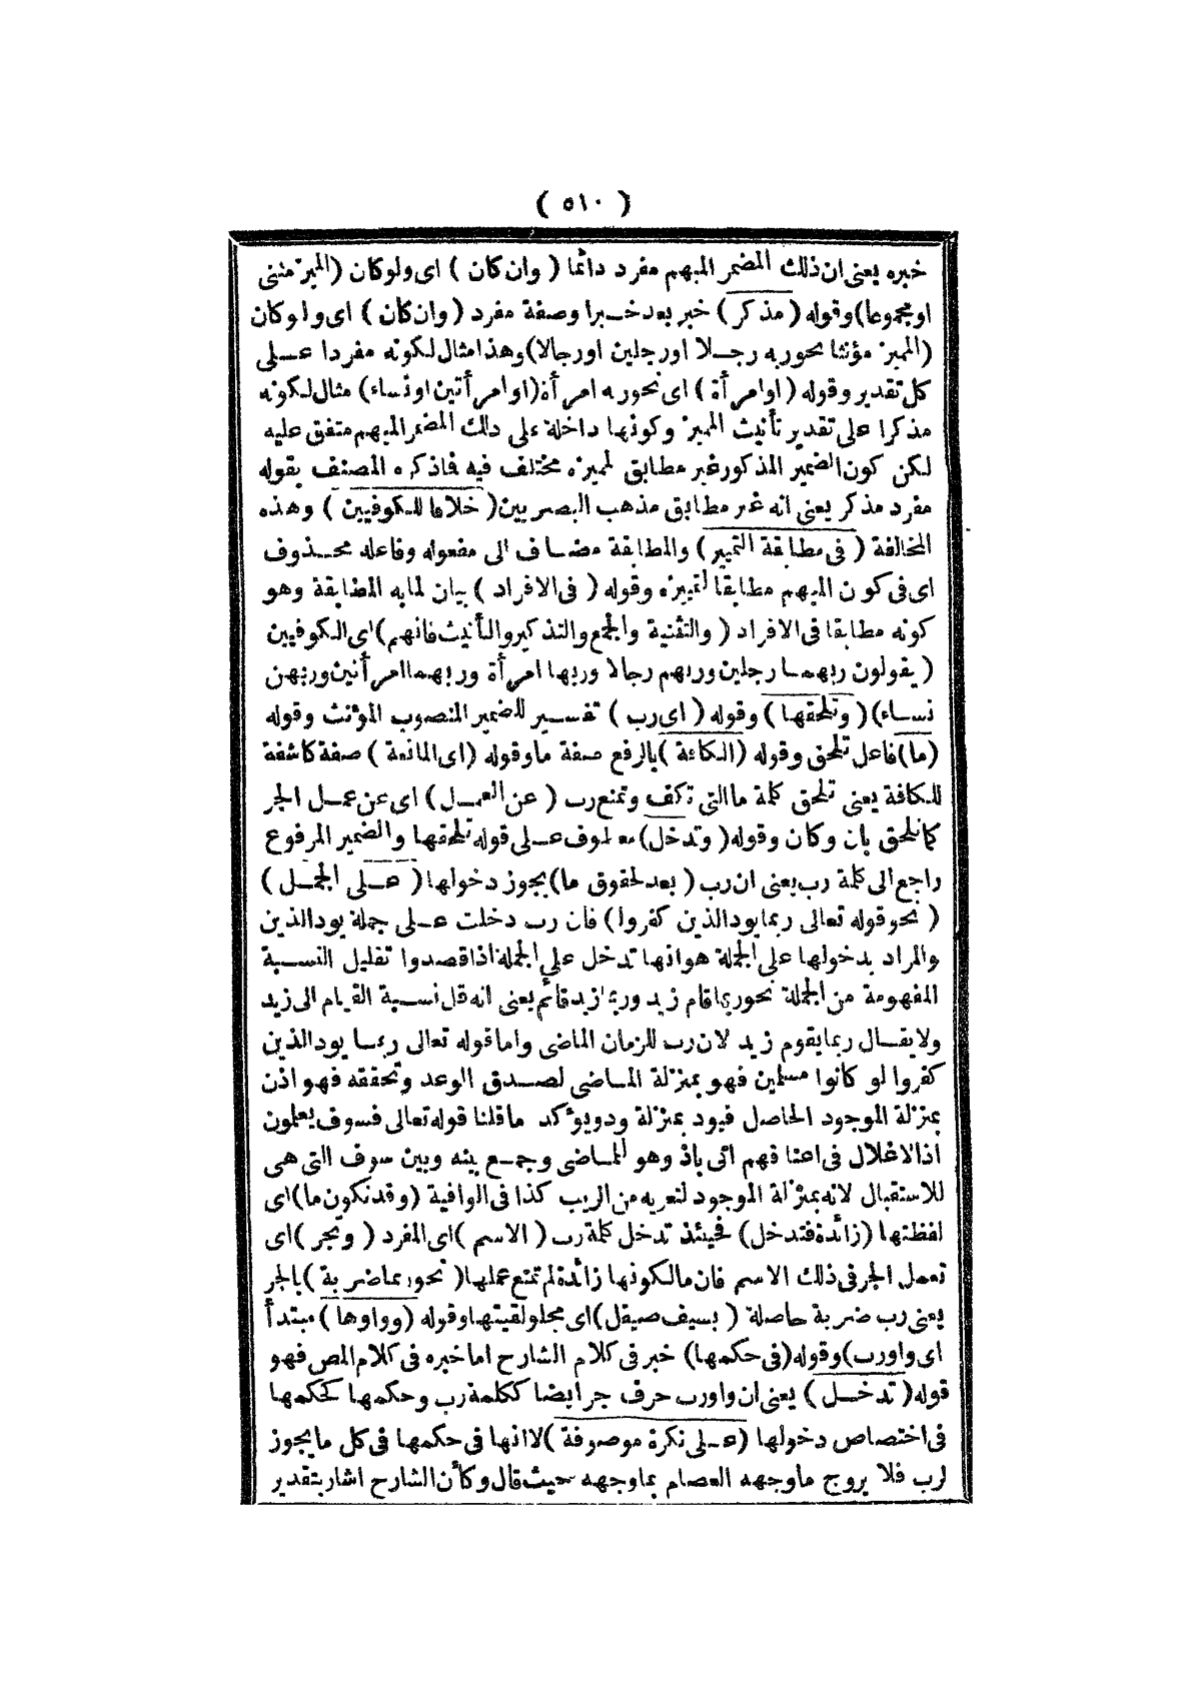 ( ٥١٠ )
خبره يعنى ان ذلك المضمر المبهم مفرد دائما ( وان كان ) اى ولو كان (المميز مثنى
او مجموعا) وقوله ( مذكر ) خبر بعد خبرا وصفة مفرد ( وان كان ) اى ولو كان
(المميز مؤنثا نحو ربه رجلا او رجلين او رجالا) وهذا مثال لكونه مفردا على
كل تقدير وقوله ( او امرأة ) اى نحو ربه امرأة (او امرأتين او نساء) مثال لكونه
مذكرا على تقدير تأنيث المميز وكونها داخلة على ذلك المضمر المبهم متفق عليه
لكن كون الضمير المذكور غير مطابق لمميزه مختلف فيه فاذكره المصنف بقوله
مفرد مذكر يعنى انه غير مطابق مذهب البصريين ( خلافا للكوفيين ) وهذه
المخالفة ( فى مطابقة التمييز ) والمطابقة مضاف الى مفعوله وفاعله محذوف
اى فى كون المبهم مطابقا لتمييزه وقوله ( فى الافراد ) بيان لمابه المطابقة وهو
كونه مطابقا فى الافراد ( والتثنية والجمع والتذكير والتأنيث فانهم) اى الكوفيين
( يقولون ربهما رجلين وربهم رجالا وربها امرأة وربهما امرأتين وربهن
نساء) ( وتلحقها ) وقوله ( اى رب ) تفسير للضمير المنصوب المؤنث وقوله
(ما) فاعل تلحق وقوله (الكافة) بالرفع صفة ما وقوله (اى المانعة ) صفة كاشفة
للكافة يعنى تلحق كلمة ما التى تكف وتمنع رب ( عن العمل ) اى عن عمل الجر
كما تلحق بان وكان وقوله ( وتدخل) معطوف على قوله تلحقها والضمير المرفوع
راجع الى كلمة رب يعنى ان رب ( بعد لحقوق ما) يجوز دخولها ( على الجمل )
( نحو قوله تعالى ربما يود الذين كفروا) فان رب دخلت على جملة يود الذين
والمراد بدخولها على الجملة هو انها تدخل على الجملة اذا قصدوا تقليل النسبة
المفهومة من الجملة نحو ربما قام زيد وربما زيد قائم يعنى انه قل نسبة القيام الى زيد
ولا يقال ربما يقوم زيد لان رب للزمان الماضى واما قوله تعالى ربما يود الذين
كفروا لو كانوا مسلمين فهو بمنزلة الماضى لصدق الوعد وتحققه فهو اذن
بمنزلة الموجود الحاصل فيود بمنزلة ود ويؤكد ما قلنا قوله تعالى فسوف يعلمون
اذ الاغلال فى اعناقهم اتى باذ وهو الماضى وجمع بينه وبين سوف التى هى
للاستقبال لانه بمنزلة الموجود لتعريه من الريب كذا فى الوافية ( وقد تكون ما) اى
لفظتها (زائدة فتدخل) فحينئذ تدخل كلمة رب ( الاسم ) اى المفرد ( وتجر ) اى
تعمل الجر فى ذلك الاسم فان ما لكونها زائدة لم تمنع عملها ( نحو ربما ضربة ) بالجر
يعنى رب ضربة حاصلة ( بسيف صيقل) اى مجلو لقيتها وقوله ( وواوها ) مبتدأ
اى واو رب) وقوله (فى حكمها) خبر فى كلام الشارح اما خبره فى كلام المص فهو
قوله ( تدخل ) يعنى ان واو رب حرف جر ايضا ككلمة رب وحكمها كحكمها
فى اختصاص دخولها (على نكرة موصوفة) لا انها فى حكمها فى كل ما يجوز
لرب فلا يروج ما وجهه العصام بما وجهه حيث قال وكأن الشارح اشار بتقدير